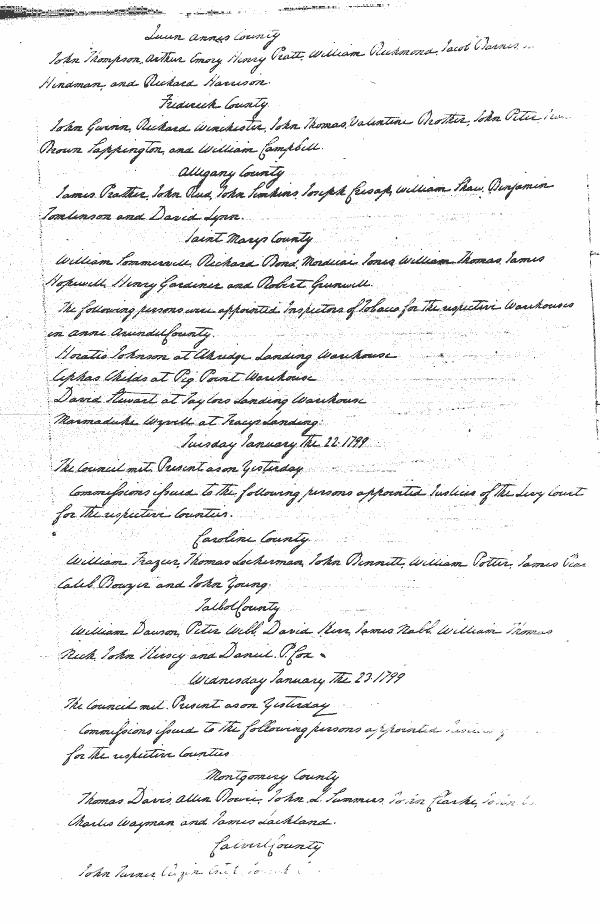 Queen Annes County
John Thompson, Arthur Emory Henry Pratt, William Richmond, Jacob Barnes
Hindman, and Richard Harrison.
Frederick County
John Gwinn, Richard Winchester, John Thomas, Valentine Brother, John Peter
Brown Sappington, and William Campbell.
Allegany County
James Prather, John Reid, John Simkins, Joseph Cresap, William Shaw, Benjamin
Tomlinson and David Lynn.
Saint Marys County
William Sommervill, Richard Bond, Mordecai Jones, William Thomas, James
Hopewell, Henry Gardiner and Robert Greenwell.
The following persons were appointed Inspectors of Tobacco for the respective Warehouses
in Anne Arundel County.
Horatio Johnson at Landing Warehouse
Cephas Childs at Pig Point Warehouse
David Stewart at Taylors Landing Warehouse
Marmaduke Wyvill at Tracys Landing.
Tuesday January the 22. 1799
The Council met. Present as on Yesterday
Commissions issued to the following persons appointed Justices of the Levy Court
for the respective Counties.
Caroline County
William Frazier, Thomas Lockerman, John Bennett, William Potter, James
Caleb Bowzer and John Young.
Talbot County
William Dawson, Peter Webb, David Kerr, James Nabb, William Thomas
Nick, John Kersey and Daniel P. Cox
Wednesday January the 23. 1799
The Council met. Present as on Yesterday
Commissions issued to the following persons appointed
for the respective Counties
Montgomery County
Thomas Davis, Allen Bowie, John L Summers, John Clarke, John
Charles Wayman and James Lackland.
Calvert County
John Turner